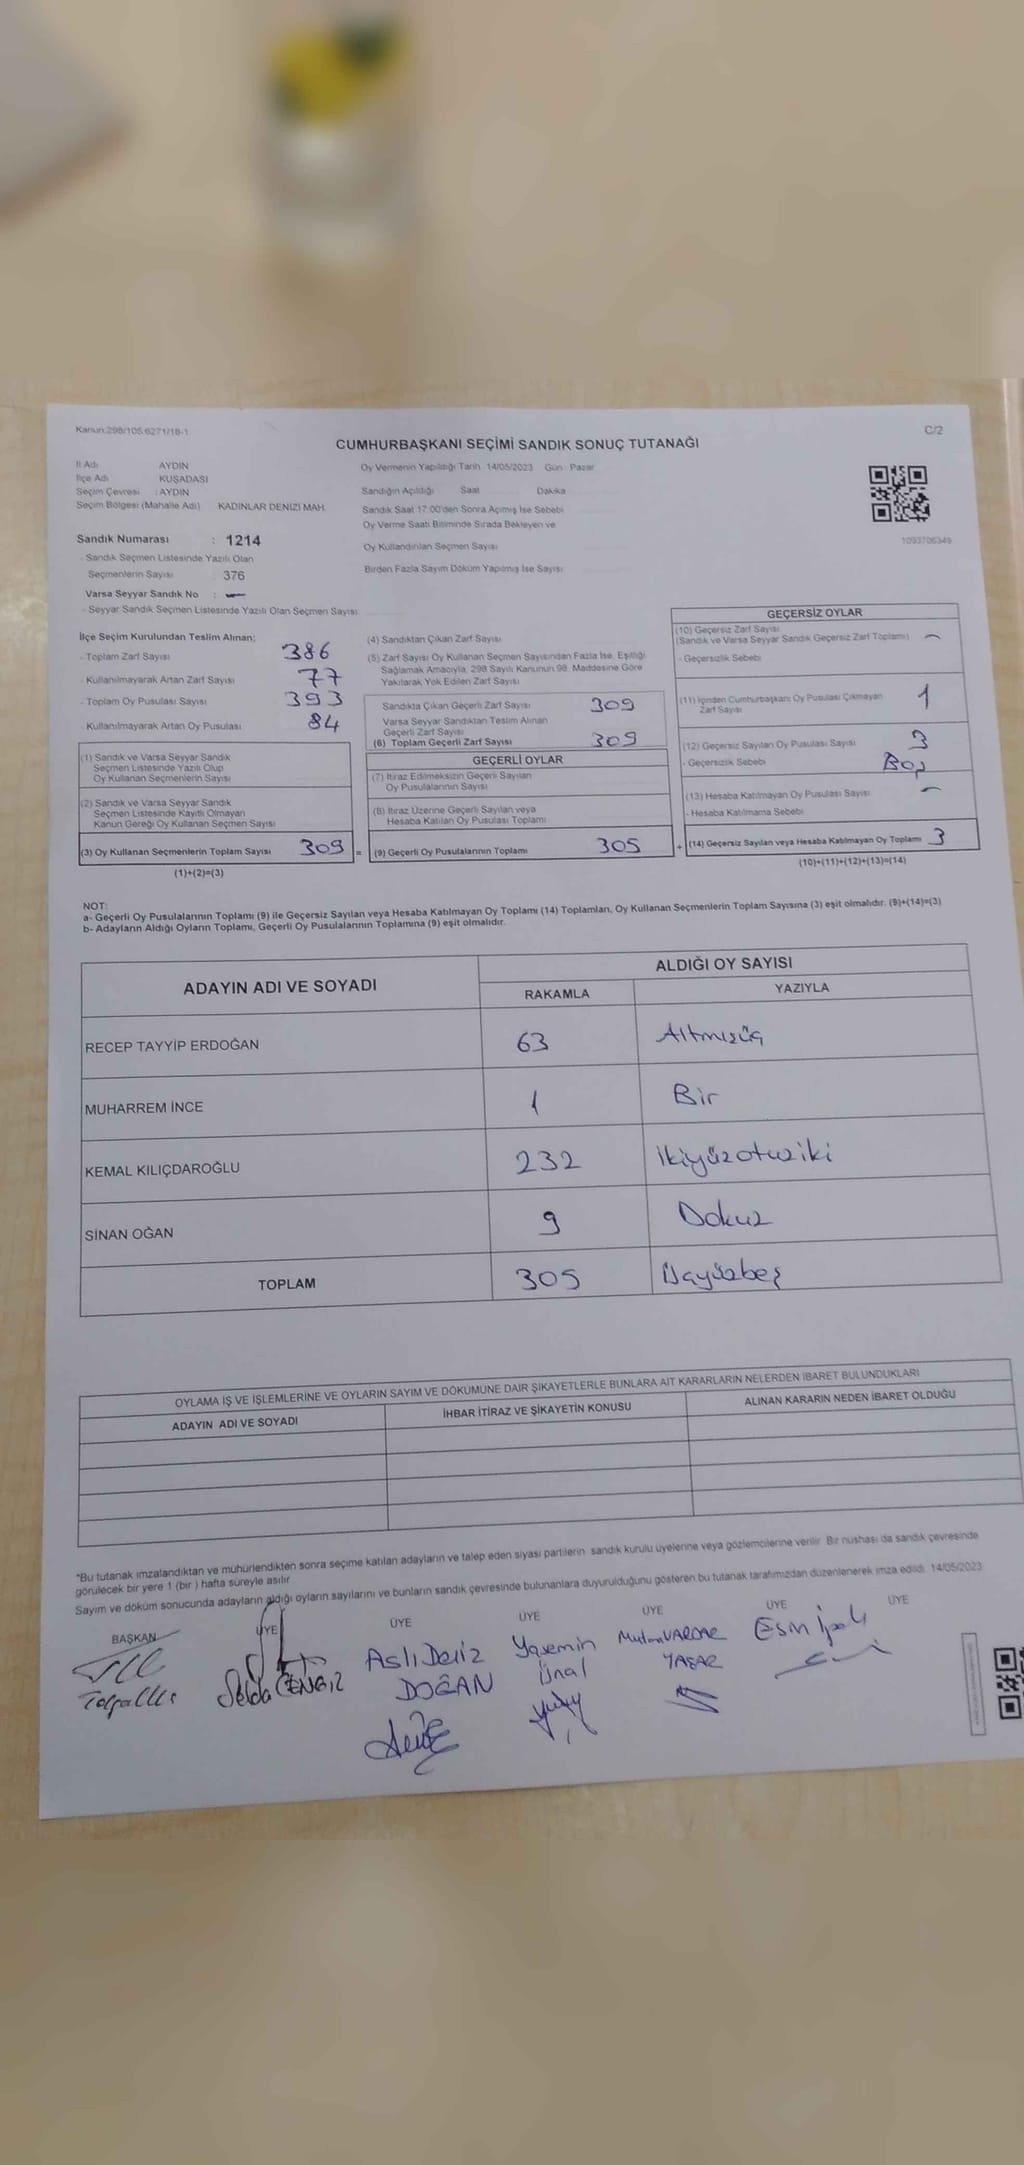 Kanun.298/105.6271/18-1
C/2
CUMHURBAŞKANI SEÇİMİ SANDIK SONUÇ TUTANAĞI
İl Adı AYDIN
İlçe Adı KUŞADASI
Seçim Çevresi : AYDIN
Seçim Bölgesi (Mahalle Adı) KADINLAR DENİZİ MAH.
Oy Vermenin Yapıldığı Tarih 14/05/2023 Gün : Pazar
Sandığın Açıldığı Saat Dakika
Sandık Saat 17:00'den Sonra Açımış İse Sebebi
Oy Verme Saati Bitiminde Sırada Bekleyen ve
Oy Kullandırılan Seçmen Sayısı
Birden Fazla Sayım Döküm Yapılmış İse Sayısı
1093706349
Sandık Numarası : 1214
- Sandık Seçmen Listesinde Yazılı Olan
Seçmenlerin Sayısı 376
Varsa Seyyar Sandık No : —
- Seyyar Sandık Seçmen Listesinde Yazılı Olan Seçmen Sayısı:
İlçe Seçim Kurulundan Teslim Alınan;
- Toplam Zarf Sayısı 386
- Kullanılmayarak Artan Zarf Sayısı 77
- Toplam Oy Pusulası Sayısı 393
- Kullanılmayarak Artan Oy Pusulası 84
(1) Sandık ve Varsa Seyyar Sandık
Seçmen Listesinde Yazılı Olup
Oy Kullanan Seçmenlerin Sayısı
(2) Sandık ve Varsa Seyyar Sandık
Seçmen Listesinde Kayıtlı Olmayan
Kanun Gereği Oy Kullanan Seçmen Sayısı
(3) Oy Kullanan Seçmenlerin Toplam Sayısı 309
(1)+(2)=(3)
(4) Sandıktan Çıkan Zarf Sayısı
(5) Zarf Sayısı Oy Kullanan Seçmen Sayısından Fazla İse, Eşitliği
Sağlamak Amacıyla, 298 Sayılı Kanunun 98. Maddesine Göre
Yakılarak Yok Edilen Zarf Sayısı
Sandıkta Çıkan Geçerli Zarf Sayısı 309
Varsa Seyyar Sandıktan Teslim Alınan
Geçerli Zarf Sayısı
(6) Toplam Geçerli Zarf Sayısı 309
GEÇERLİ OYLAR
(7) İtiraz Edilmeksizin Geçerli Sayılan
Oy Pusulalarının Sayısı
(8) İtiraz Üzerine Geçerli Sayılan veya
Hesaba Katılan Oy Pusulası Toplamı
= (9) Geçerli Oy Pusulalarının Toplamı 305
GEÇERSİZ OYLAR
(10) Geçersiz Zarf Sayısı
(Sandık ve Varsa Seyyar Sandık Geçersiz Zarf Toplamı) —
- Geçersizlik Sebebi
(11) İçinden Cumhurbaşkanı Oy Pusulası Çıkmayan
Zarf Sayısı 1
(12) Geçersiz Sayılan Oy Pusulası Sayısı 3
- Geçersizlik Sebebi Boş
(13) Hesaba Katılmayan Oy Pusulası Sayısı —
- Hesaba Katılmama Sebebi
+ (14) Geçersiz Sayılan veya Hesaba Katılmayan Oy Toplamı 3
(10)+(11)+(12)+(13)=(14)
NOT:
a- Geçerli Oy Pusulalarının Toplamı (9) ile Geçersiz Sayılan veya Hesaba Katılmayan Oy Toplamı (14) Toplamları, Oy Kullanan Seçmenlerin Toplam Sayısına (3) eşit olmalıdır. (9)+(14)=(3)
b- Adayların Aldığı Oyların Toplamı, Geçerli Oy Pusulalarının Toplamına (9) eşit olmalıdır.
ADAYIN ADI VE SOYADI
ALDIĞI OY SAYISI
RAKAMLA YAZIYLA
RECEP TAYYİP ERDOĞAN 63 Altmışüç
MUHARREM İNCE 1 Bir
KEMAL KILIÇDAROĞLU 232 İkiyüzotuziki
SİNAN OĞAN 9 Dokuz
TOPLAM 305 Üçyüzbeş
OYLAMA İŞ VE İŞLEMLERİNE VE OYLARIN SAYIM VE DÖKÜMÜNE DAİR ŞİKAYETLERLE BUNLARA AİT KARARLARIN NELERDEN İBARET BULUNDUKLARI
ADAYIN ADI VE SOYADI İHBAR İTİRAZ VE ŞİKAYETİN KONUSU ALINAN KARARIN NEDEN İBARET OLDUĞU
*Bu tutanak imzalandıktan ve mühürlendikten sonra seçime katılan adayların ve talep eden siyasi partilerin sandık kurulu üyelerine veya gözlemcilerine verilir. Bir nüshası da sandık çevresinde
görülecek bir yere 1 (bir ) hafta süreyle asılır.
Sayım ve döküm sonucunda adayların aldığı oyların sayılarını ve bunların sandık çevresinde bulunanlara duyurulduğunu gösteren bu tutanak tarafımızdan düzenlenerek imza edildi. 14/05/2023
BAŞKAN ÜYE ÜYE ÜYE ÜYE ÜYE ÜYE
Selda CENGİZ
Aslı Deniz
DOĞAN
Yasemin
Ünal
VARDAR
YAŞAR
Esin